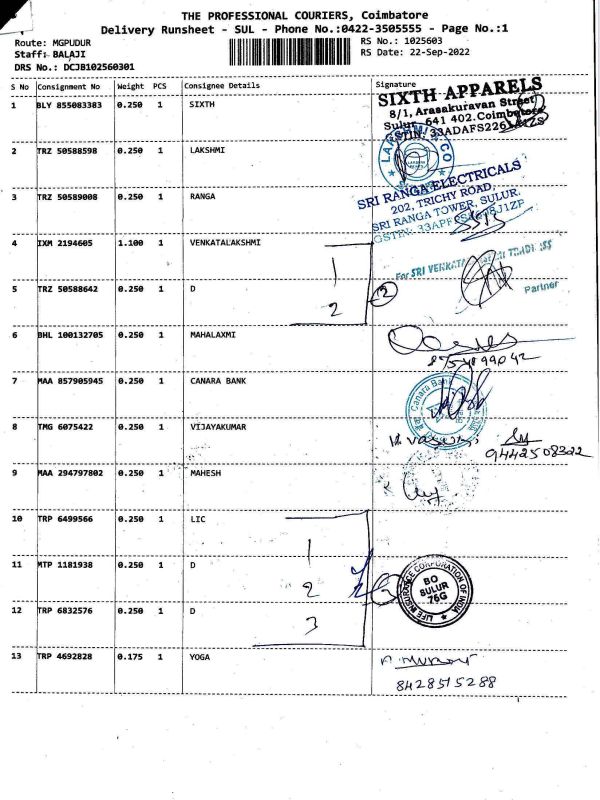 THE PROFESSIONAL COURIERS, Coimbatore
Delivery Runsheet - SUL - Phone No.:0422-3505555 - Page No.:1
Route: MGPUDUR
RS No.: 1025603
Staff: BALAJI
RS Date: 22-Sep-2022
DRS No.: DCJB102560301
S No Consignment No Weight PCS Consignee Details Signature
1 BLY 855083383 0.250 1 SIXTH
SIXTH APPARELS
8/1, Arasakuravan Street
Sulur 641 402. Coimbatore
2 TRZ 50588598 0.250 1 LAKSHMI
LAKSHMI & CO
3 TRZ 50589008 0.250 1 RANGA
SRI RANGA ELECTRICALS
202, TRICHY ROAD,
SRI RANGA TOWER, SULUR.
4 IXM 2194605 1.100 1 VENKATALAKSHMI
1
For SRI VENKATA
Partner
5 TRZ 50588642 0.250 1 D
2
2
6 BHL 100132705 0.250 1 MAHALAXMI
8754899042
7 MAA 857905945 0.250 1 CANARA BANK
Canara Bank
8 TMG 6075422 0.250 1 VIJAYAKUMAR
9442508322
9 MAA 294797802 0.250 1 MAHESH
10 TRP 6499566 0.250 1 LIC
1
11 MTP 1181938 0.250 1 D
2
LIFE INSURANCE CORPORATION OF INDIA
BO
SULUR
76G
12 TRP 6832576 0.250 1 D
3
13 TRP 4692828 0.175 1 YOGA
8428515288